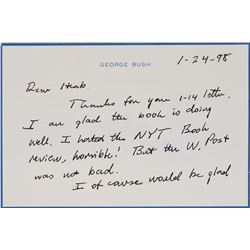 GEORGE BUSH
1-24-98
Dear Herb,
Thanks for your 1-14 letter.
I am glad the book is doing
well. I hated the NYT Book
review, horrible! But the W. Post
was not bad.
I of course would be glad